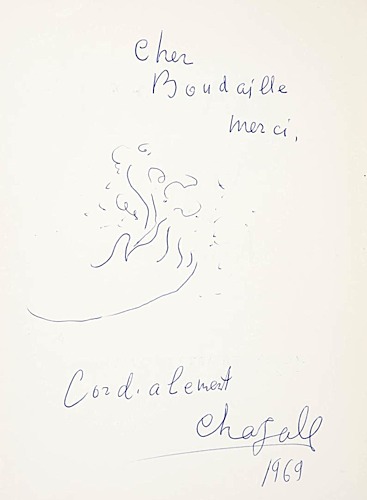 Cher
Boudaille
merci,
Cordialement
Chagall
1969